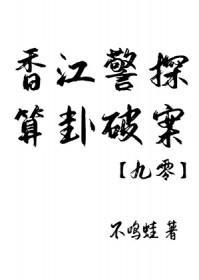 香江警探
算卦破案
【九零】
不鸣蛙 著